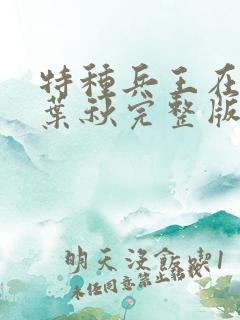 特種兵王在
葉秋完整版
明天沒飯喫1
未任同意禁止轉載